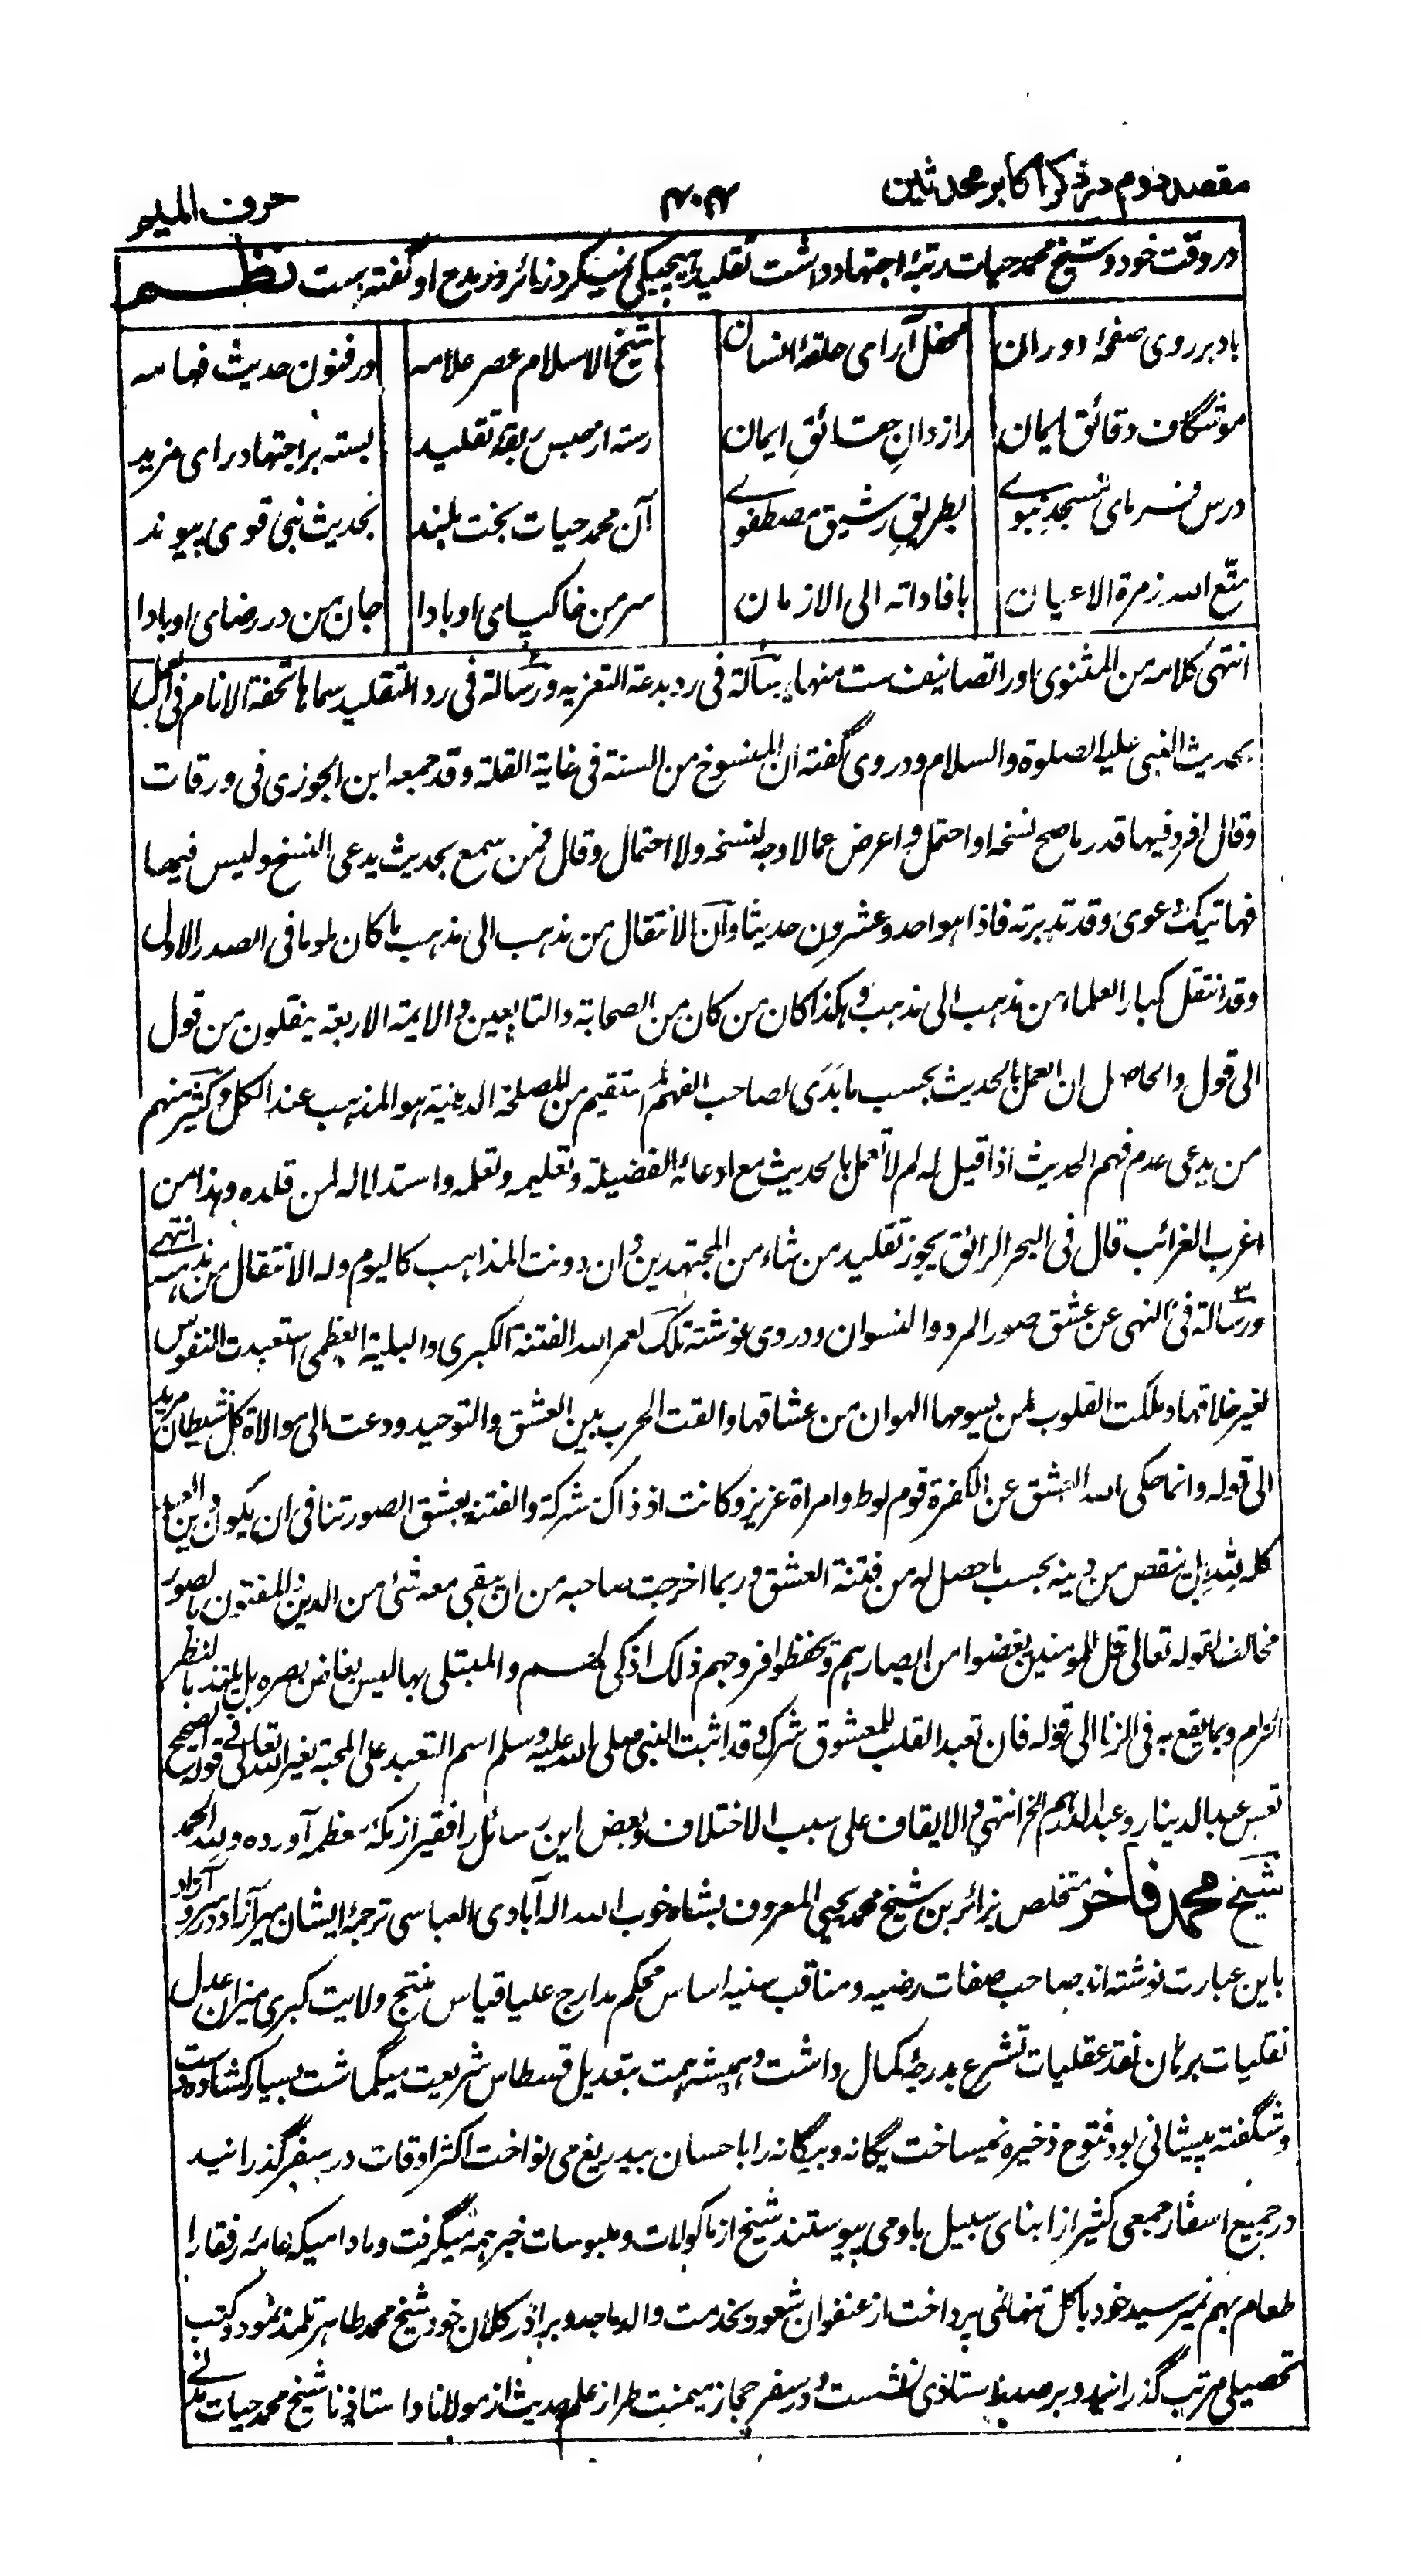 مقصد دوم در ذکر اکابر محدثین
۴۰۴
حرف المیم
در وقت خود و شیخ محمد حیات رتبهٔ اجتهاد داشت تقلید هیچیکی نمیکرد زائر در مدح او گفته ست نظم
باد بر روی صفحهٔ دوران محفل آرای حلقهٔ انسان شیخ الاسلام عصر علامه در فنون حدیث فهامه
موشگاف دقائق ایمان رازدانِ حقائقِ ایمان رسته از حبس ربقهٔ تقلید بسته بر اجتهاد رای مزید
درس فرمای مسجدِ نبوے بطریقِ رشیقِ مصطفوے آن محمد حیات بخت بلند بحدیث نبی قوی پیوند
متّع الله زمرة الاعیان بافاداته الی الازمان سر من خاکپای او بادا جان من در رضای او بادا
انتهی کلامه من المثنوی او را تصانیف ست منها رسالة فی رد بدعة التعزیه و رسالة فی رد التقلید سماها تحفة الانام فی العمل
بحدیث النبی علیه الصلوة والسلام و در وی گفته ان المنسوخ من السنة فی غایة القلة وقد جمعه ابن الجوزی فی ورقات
وقال افرد فیها قدر ما صح نسخه او احتمل واعرض عما لا وجه لنسخه ولا احتمال وقال فمن سمع بحدیث یدعی النسخ ولیس فیها
فهاتیک دعوی وقد تدبرته فاذا هو احد وعشرون حدیثا وان الانتقال من مذهب الی مذهب ما کان ملوما فی الصدر الاول
وقد انتقل کبار العلماء من مذهب الی مذهب وهکذا کان من کان من الصحابة والتابعین والایمة الاربعة ینقلون من قول
الی قول والحاصل ان العمل بالحدیث بحسب ما بَدَی لصاحب الفهم المستقیم من المصلحة الدینیة هو المذهب عند الکل وکثیر منهم
من یدعی عدم فهم الحدیث اذا قیل له لم لا تعمل بالحدیث مع ادعائه الفضیلة وتعلیمه وتعلمه واستدلاله لمن قلده وهذا من
اغرب الغرائب قال فی البحر الرائق یجوز تقلید من شاء من المجتهدین وان دونت المذاهب کالیوم وله الانتقال من مذهبه انتهی
ورسالة فی النهی عن عشق صور المرد والنسوان و در وی نوشته تلک لعمر الله الفتنة الکبری والبلیة العظمی استعبدت النفوس
لغیر خلاقها وملکت القلوب لمن یسومها الهوان من عشاقها والقت الحرب بین العشق والتوحید ودعت الی موالاة کل شیطان مرید
الی قوله وانما حکی الله العشق عن الکفرة قوم لوط وامراة عزیز وکانت اذ ذاک مشرکة والفتنة بعشق الصور تنافی ان یکون دین العبد
کله لله بل ینقص من دینه بحسب ما حصل له من فتنة العشق وربما اخرجت صاحبه من ان یبقی معه شئ من الدین والمفتون بالصور
مخالف لقوله تعالی قل للمومنین یغضوا من ابصارهم ویحفظوا فروجهم ذلک ازکی لهم والمبتلی بها لیس بغاض بصره بل یلتذ بالنظر
الحرام وبما یقع به فی الزنا الی قوله فان تعبد القلب للمعشوق شرک وقد اثبت النبی صلی الله علیه وسلم اسم التعبد علی المحبة لغیر الله تعالی فی قوله الصحیح
تعس عبد الدینار وعبد الدرهم الخ انتهی والایقاف علی سبب الاختلاف وبعض این رسائل را فقیر از مکهٔ معظمه آورده ولله الحمد
شیخ محمد فاخر متخلص بزائر بن شیخ محمد یحیی المعروف بشاه خوب الله اله آبادی العباسی ترجمهٔ ایشان میر آزاد در سرو آزاد
باین عبارت نوشته اند صاحب صفات رضیه و مناقب سنیه اساس محکم مدارج علیا قیاس منتج ولایت کبری میزان عدل
نقلیات برهان نقد عقلیات تشرع بدرجهٔ کمال داشت و همیشه همت بتعدیل قسطاس شریعت میگماشت بسیار کشاده دست
و شگفته پیشانی بود فتوح ذخیره نمیساخت یگانه و بیگانه را باحسان بیدریغ می نواخت اکثر اوقات در سفر گذرانید
در جمیع اسفار جمعی کثیر از ابنای سبیل باو می پیوستند شیخ از ماکولات و ملبوسات خبر همه میگرفت و مادامیکه عامهٔ رفقا را
طعام بهم نمیرسید خود باکل تنها نمی پرداخت از عنفوان شعور بخدمت والد ماجد و برادر کلان خود شیخ محمد طاهر تلمذ نمود و کتب
تحصیلی مرتب گذرانید و بر مسند استاذی نشست و در سفر حجاز میمنت طراز علم حدیث از مولانا و استاذنا شیخ محمد حیات مدنے